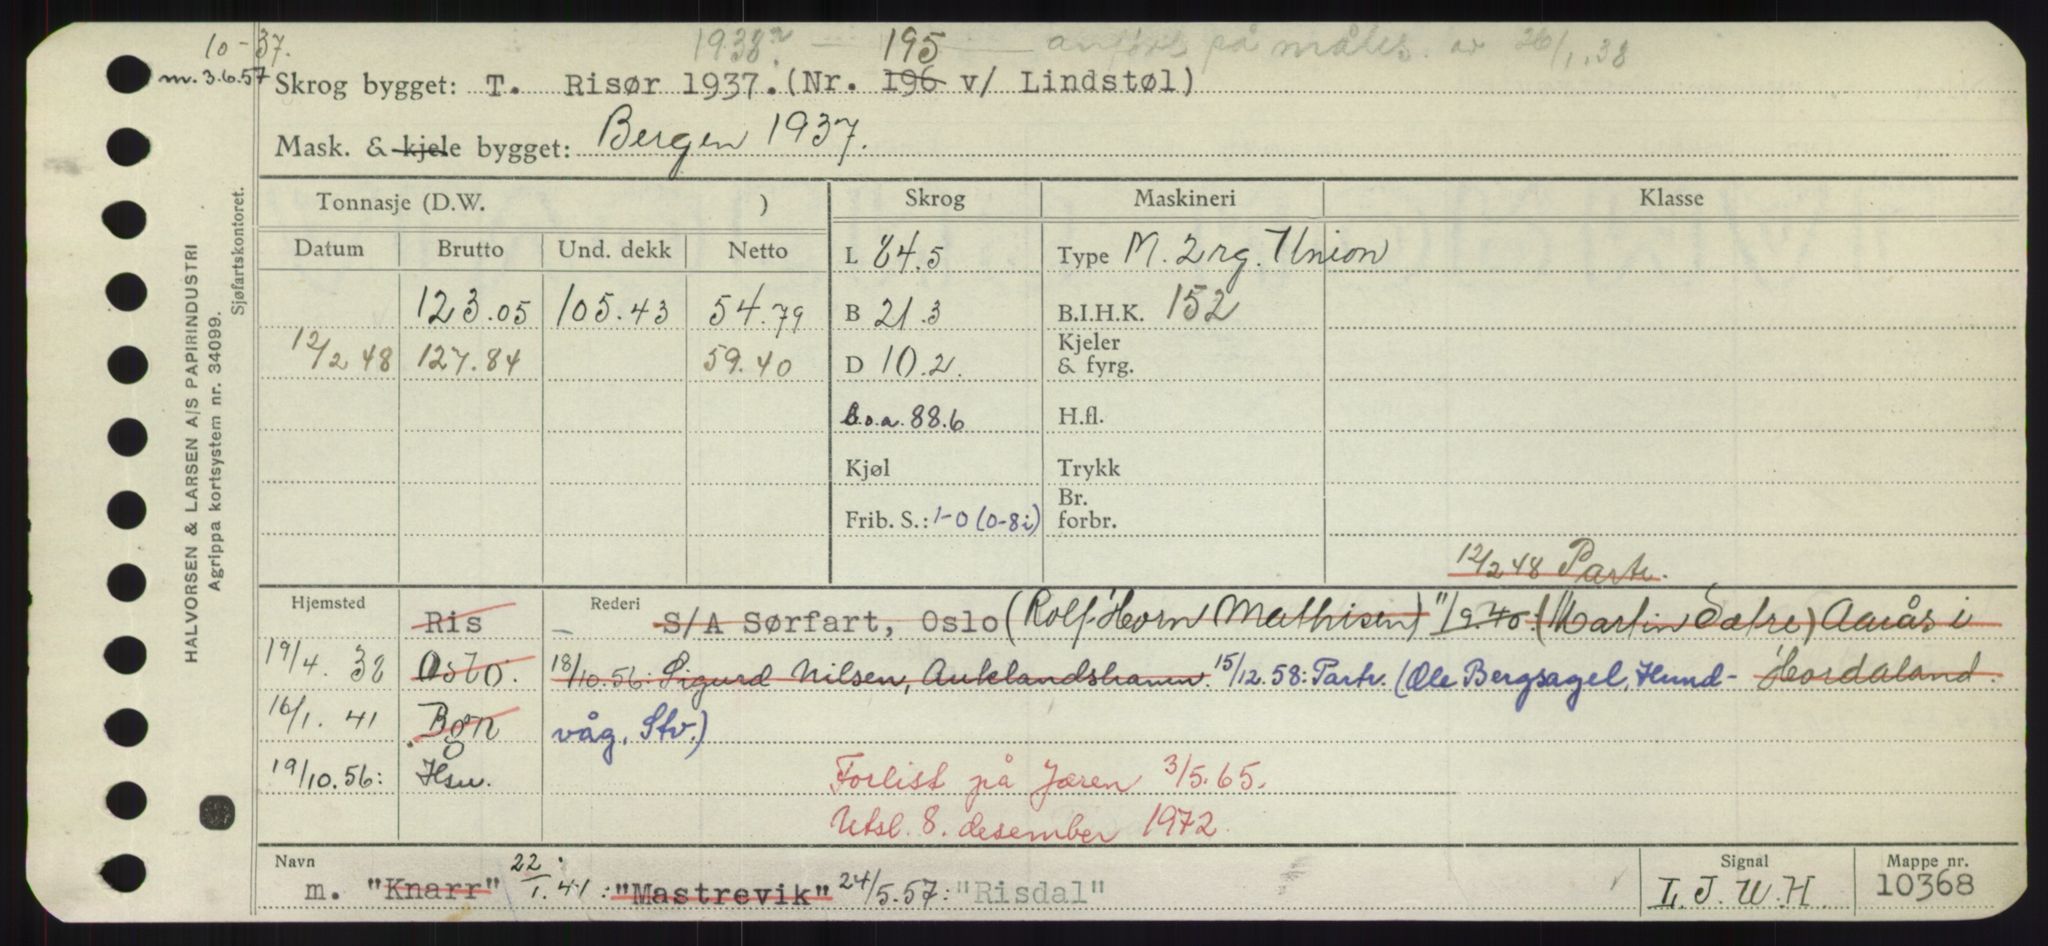 10-37. 1938? — 195 — anført på målebr. av 26/1.38
m. 3.6.57 Skrog bygget: T. Risør 1937. (Nr. 196 v/ Lindstøl)
Mask. & kjele bygget: Bergen 1937.
Tonnasje (D.W. ) Skrog Maskineri Klasse
Datum Brutto Und. dekk Netto L 84.5 Type M. 2 rg. Union
123.05 105.43 54.79 B 21.3 B.I.H.K. 152
12/2 48 127.84 59.40 D 10.2. Kjeler & fyrg.
l.o.a. 88.6 H.fl.
Kjøl Trykk
Frib. S.: 1-0 (0-8i) Br. forbr.
12/2 48 Partr.
Hjemsted Ris Rederi — S/A Sørfart, Oslo (Rolf Horn Mathisen) "/9.40. (Martin Sætre) Aarås i
19/4. 38 Oslo. 18/10.56: Sigurd Nilsen, Auklandshamn. 15/12.58: Partr. (Ole Bergsagel, Hund- Hordaland.
16/1. 41 Bgn våg, Stv.)
19/10.56: Hsu. Forlist på Jæren 3/5.65.
Utsl. 8. desember 1972.
Navn Signal Mappe nr.
m. "Knarr" 22/1.41: "Mastrevik" 24/5.57: "Risdal" L.J.W.H. 10368
HALVORSEN & LARSEN A/S PAPIRINDUSTRI
Agrippa kortsystem nr. 34099.
Sjøfartskontoret.